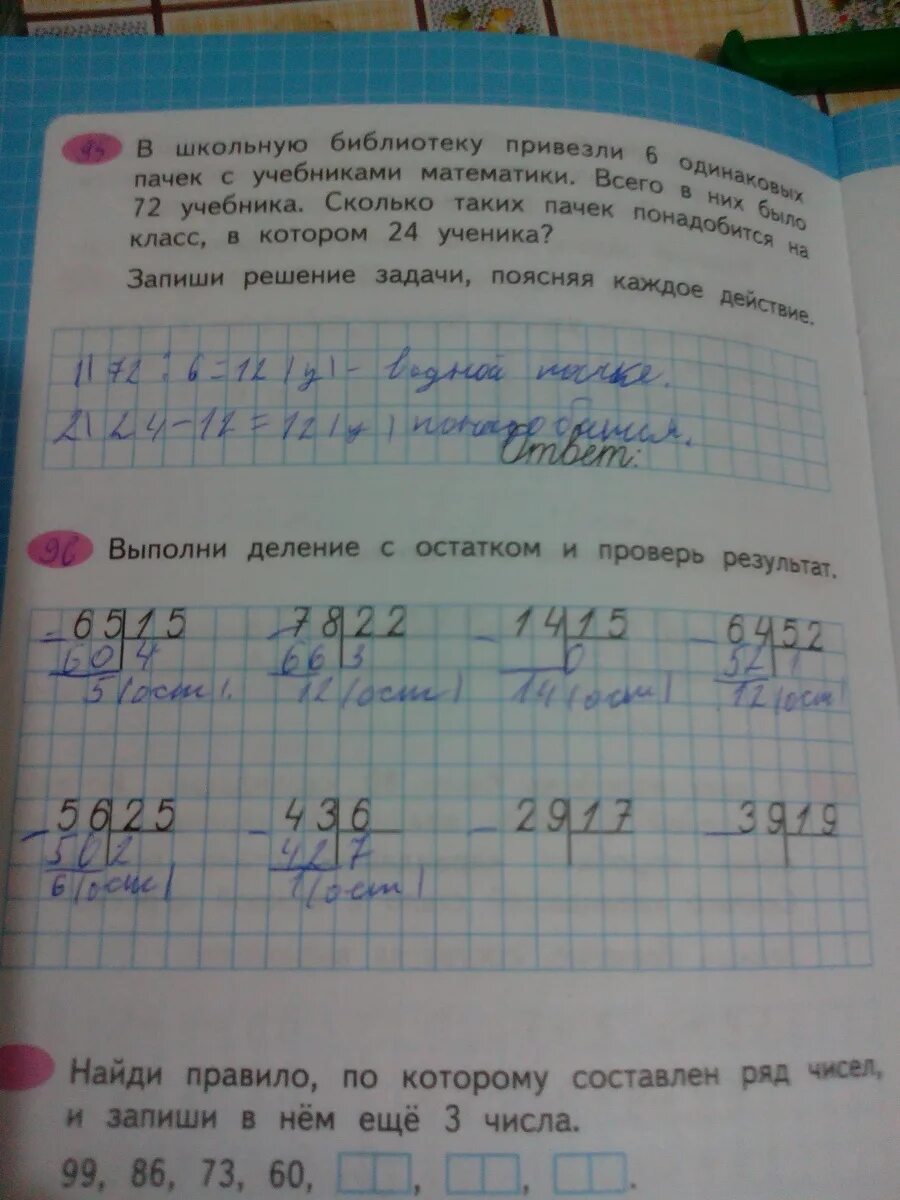 95 В школьную библиотеку привезли 6 одинаковых
пачек с учебниками математики. Всего в них было
72 учебника. Сколько таких пачек понадобится на
класс, в котором 24 ученика?
Запиши решение задачи, поясняя каждое действие.
1) 72 : 6 = 12 (у) - в одной пачке.
2) 24 - 12 = 12 (у) понадобится.
Ответ:
96 Выполни деление с остатком и проверь результат.
- 65 15 - 78 22 - 14 15 - 64 52
60 4 66 3 0 52 1
5 (ост). 12 (ост) 14 (ост) 12 (ост)
- 56 25 - 43 6 - 29 17 - 39 19
50 2 42 7
6 (ост) 1 (ост)
Найди правило, по которому составлен ряд чисел,
и запиши в нём ещё 3 числа.
99, 86, 73, 60, , , .